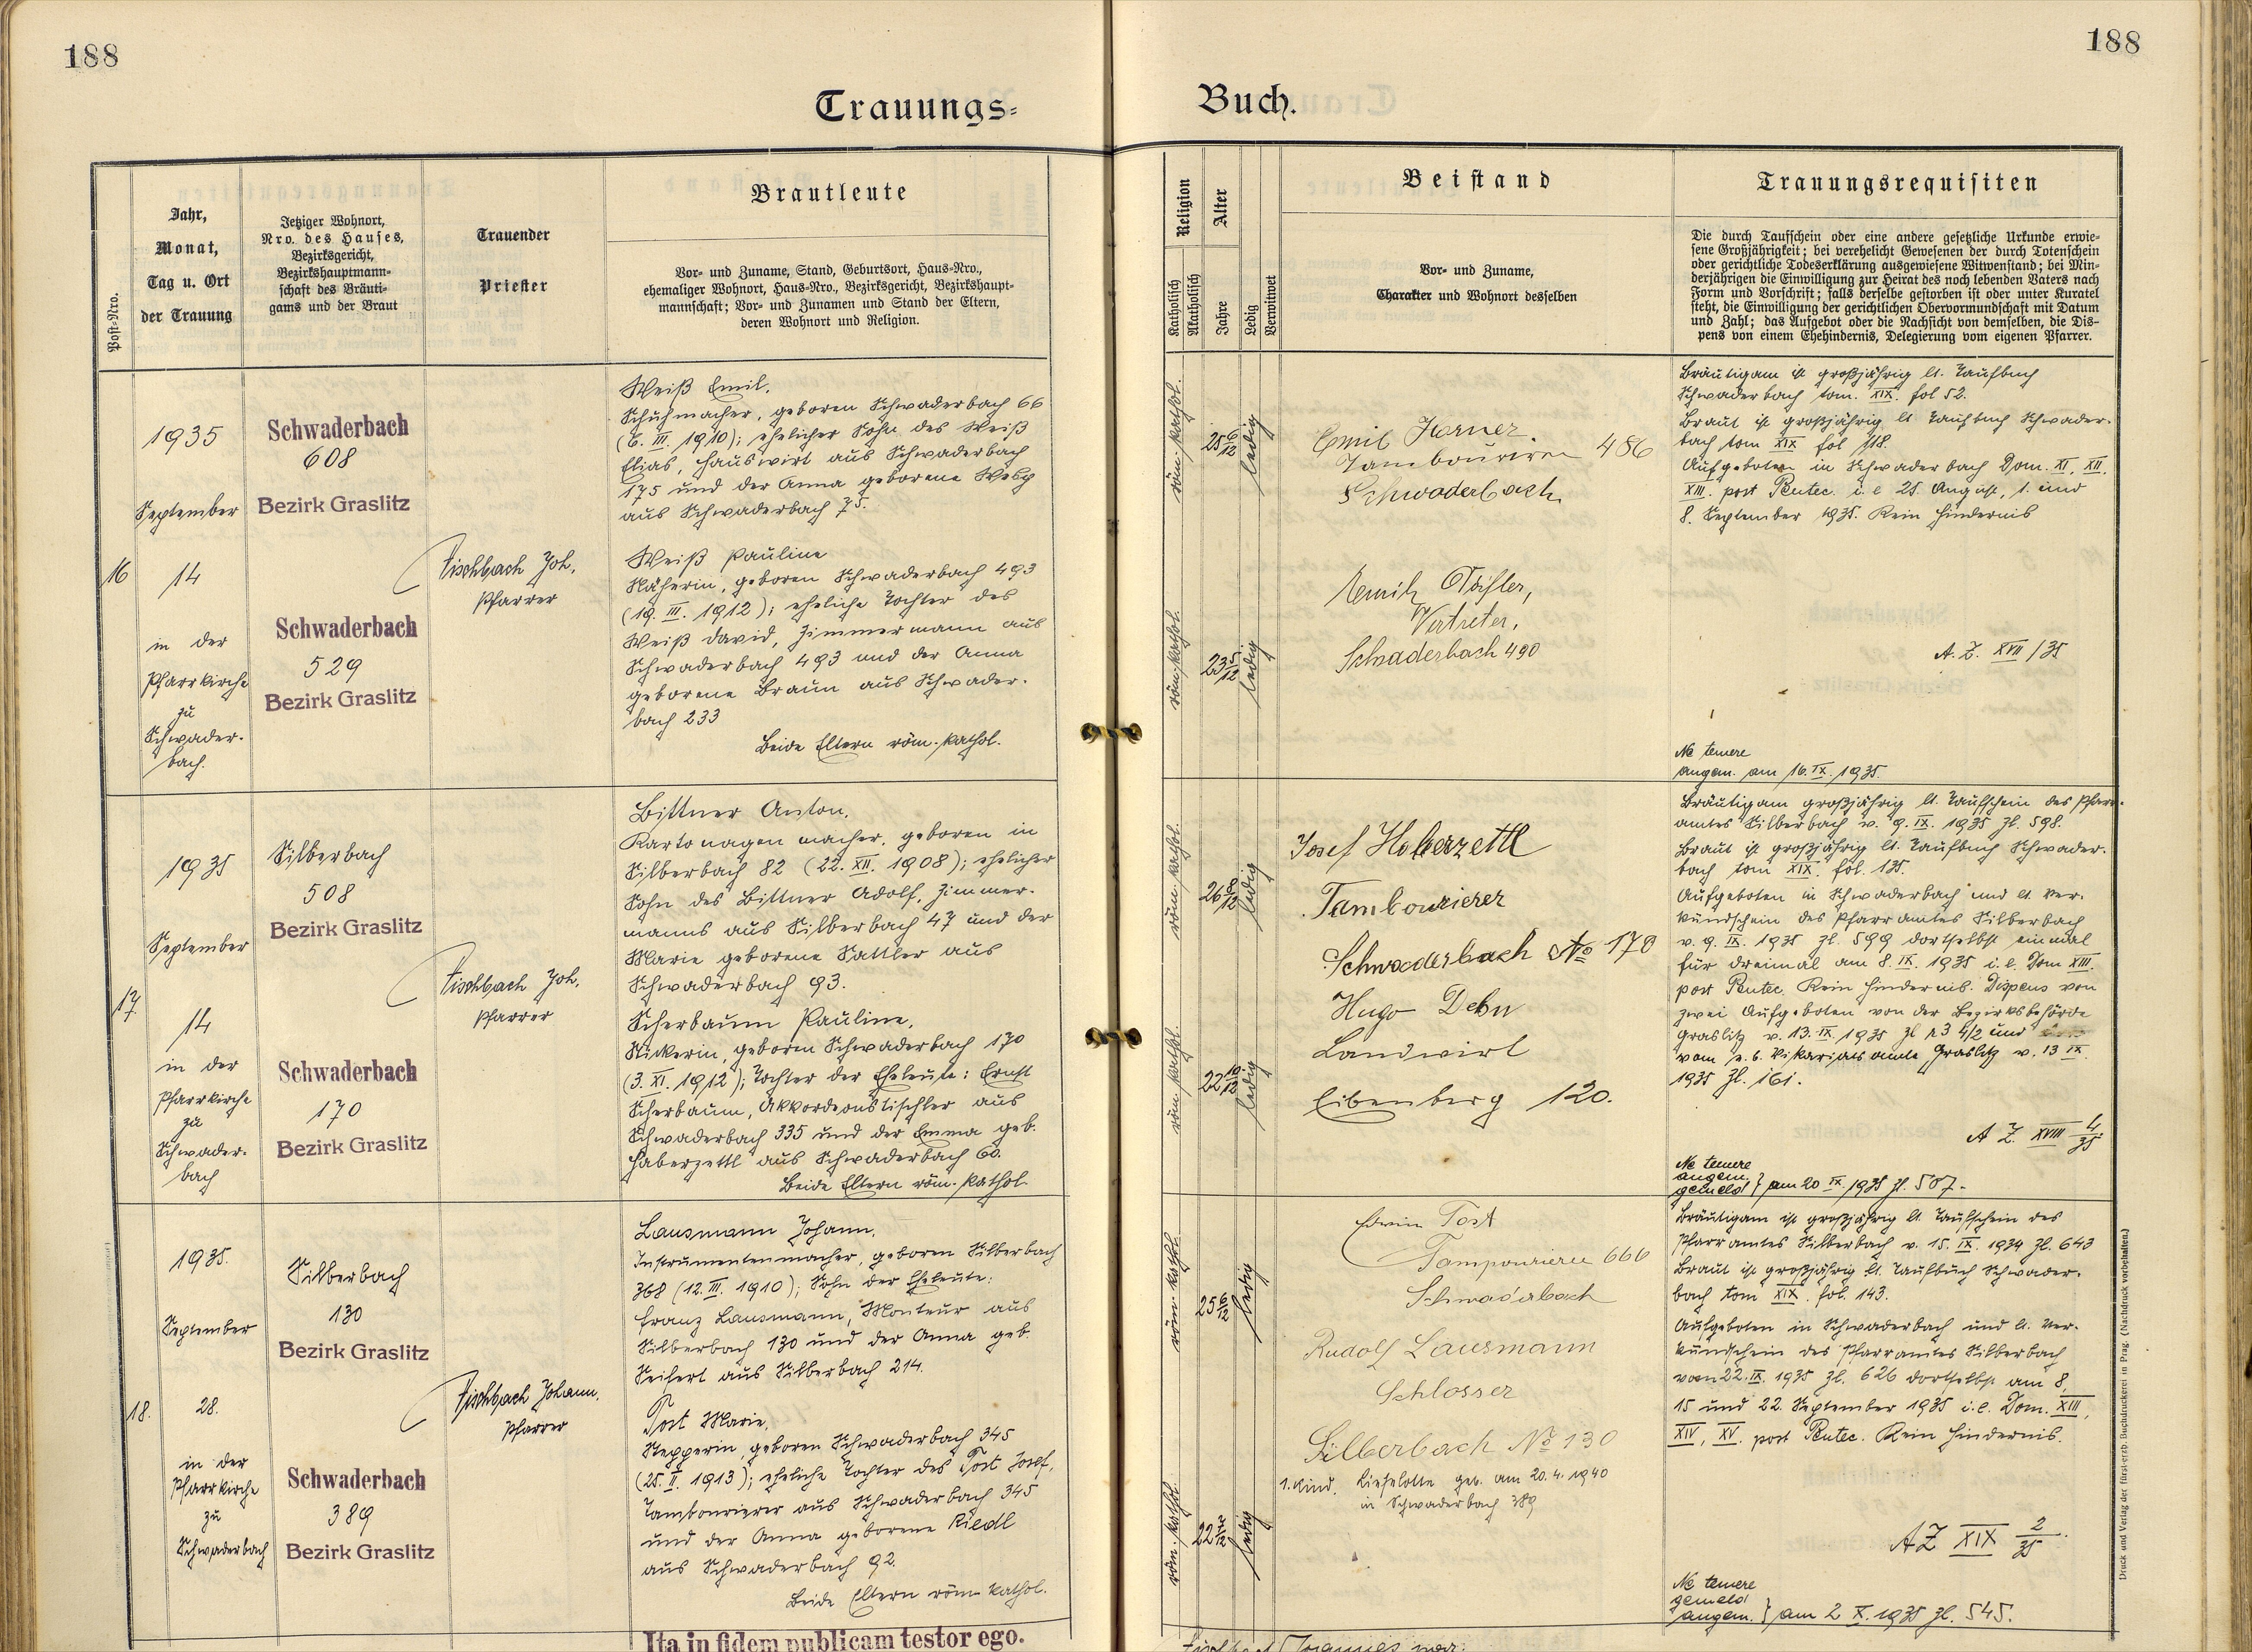 188
188
Trauungs-
Buch.
Post-Nro.
Jahr,
Monat,
Tag u. Ort
der Trauung
Jetziger Wohnort,
Nro. des Hauses,
Bezirksgericht,
Bezirkshauptmann-
schaft des Bräuti-
gams und der Braut
Trauender
Priester
Brautleute
Vor- und Zuname, Stand, Geburtsort, Haus-Nro.,
ehemaliger Wohnort, Haus-Nro., Bezirksgericht, Bezirkshaupt-
mannschaft; Vor- und Zunamen und Stand der Eltern,
deren Wohnort und Religion.
Religion
Katholisch
Akatholisch
Alter
Jahre
Ledig
Verwitwet
Beistand
Vor- und Zuname,
Charakter und Wohnort desselben
Trauungsrequisiten
Die durch Taufschein oder eine andere gesetzliche Urkunde erwie-
sene Großjährigkeit; bei verehelicht Gewesenen der durch Totenschein
oder gerichtliche Todeserklärung ausgewiesene Witwenstand; bei Min-
derjährigen die Einwilligung zur Heirat des noch lebenden Vaters nach
Form und Vorschrift; falls derselbe gestorben ist oder unter Kuratel
steht, die Einwilligung der gerichtlichen Obervormundschaft mit Datum
und Zahl; das Aufgebot oder die Nachsicht von demselben, die Dis-
pens von einem Ehehindernis, Delegierung vom eigenen Pfarrer.
16
1935
September
14
in der
Pfarrkirche
zu
Schwader-
bach.
Schwaderbach
608
Bezirk Graslitz
Schwaderbach
529
Bezirk Graslitz
Fischbach Joh.
Pfarrer
Weiß Emil.
Schuhmacher, geboren Schwaderbach 66
(6. III. 1910); ehelicher Sohn des Weiß
Elias, Hauswirt aus Schwaderbach
175 und der Anna geborene
aus Schwaderbach 75.
Weiß Pauline
Näherin, geboren Schwaderbach 493
(19. III. 1912); eheliche Tochter des
Weiß David, Zimmermann aus
Schwaderbach 493 und der Anna
geborene Braun aus Schwader-
bach 233
Beide Eltern röm. kathol.
röm. kathol.
25 6/12
ledig
röm. kathol.
23 5/12
ledig
Emil
Tambourierer 486
Schwaderbach
Vertreter,
Schwaderbach 490
Bräutigam ist großjährig lt. Taufbuch
Schwaderbach tom. XIX. fol 52.
Braut ist großjährig lt Taufbuch Schwader-
bach tom XIX fol 118.
Aufgeboten in Schwaderbach Dom. XI, XII,
XIII. post Pentec. i. e 25. August, 1. und
8. September 1935. Kein Hindernis
A. Z. XVII/35
Ne temere
angem. am 16. IX. 1935.
17.
1935
September
14
in der
Pfarrkirche
zu
Schwader-
bach
Silberbach
508
Bezirk Graslitz
Schwaderbach
170
Bezirk Graslitz
Fischbach Joh.
Pfarrer
Bittner Anton.
Kartonagenmacher, geboren in
Silberbach 82 (22. XII. 1908); ehelicher
Sohn des Bittner Adolf, Zimmer-
manns aus Silberbach 47 und der
Marie geborene Sattler aus
Schwaderbach 93.
Scherbaum Pauline.
Stickerin, geboren Schwaderbach 170
(3. XI. 1912); Tochter der Eheleute: Ernst
Scherbaum, Akkordeontischler aus
Schwaderbach 335 und der Emma geb.
Haberzettl aus Schwaderbach 60.
Beide Eltern röm. kathol.
röm. kathol.
26 8/12
ledig
röm. kathol.
22 10/12
ledig
Josef Haberzettl
Tambourierer
Schwaderbach No 170
Hugo
Landwirt
Eibenberg 120.
Bräutigam großjährig lt. Taufschein des Pfarr-
amtes Silberbach v. 9. IX. 1935 Zl. 598.
Braut ist großjährig lt. Taufbuch Schwader-
bach tom XIX. fol. 135.
Aufgeboten in Schwaderbach und lt. Ver-
kündschein des Pfarramtes Silberbach
v. 9. IX. 1935 Zl. 599 dortselbst einmal
für dreimal am 8. IX. 1935 i. e. Dom XIII.
post Pentec. Kein Hindernis. Dispens von
zwei Aufgeboten von der Bezirksbehörde
Graslitz v. 13. IX. 1935 Zl und
vom Vikariatsamte Graslitz v. 13 IX.
1935 Zl. 161.
A Z. XVIII 4/35
Ne temere
angem.
gemeld } am 20 IX. 1935 Zl. 507.
18.
1935.
September
28.
in der
Pfarrkirche
zu
Schwaderbach
Silberbach
130
Bezirk Graslitz
Schwaderbach
389
Bezirk Graslitz
Fischbach Johann.
Pfarrer
Lausmann Johann.
Instrumentenmacher, geboren Silberbach
368 (12. III. 1910); Sohn der Eheleute:
Franz Lausmann, Monteur aus
Silberbach 130 und der Anna geb.
Seifert aus Silberbach 214.
Post Marie.
Stepperin, geboren Schwaderbach 345
(25. II. 1913); eheliche Tochter des Post Josef,
Tambourierer aus Schwaderbach 345
und der Anna geborene Riedl
aus Schwaderbach 92.
Beide Eltern röm. kathol.
röm. kathol.
25 6/12
ledig
röm. kathol.
22 7/12
ledig
Edwin Post
Tampourierer 666
Schwaderbach
Rudolf Lausmann
Schlosser
Silberbach No 130
1. Kind. Lieselotte geb. am 20. 4. 1940
in Schwaderbach 389
Bräutigam ist großjährig lt. Taufschein des
Pfarramtes Silberbach v. 15. IX. 1934 Zl. 643
Braut ist großjährig lt. Taufbuch Schwader-
bach tom XIX. fol. 143.
Aufgeboten in Schwaderbach und lt. Ver-
kündschein des Pfarramtes Silberbach
vom 22. IX. 1935 Zl. 626 dortselbst am 8,
15 und 22. September 1935 i. e. Dom. XIII,
XIV, XV. post Pentec. Kein Hindernis.
AZ XIX 2/35
Ne temere
gemeld
angem. } am 2 X. 1935 Zl. 545.
Ita in fidem publicam testor ego.
Druck und Verlag der fürst-erzb. Buchdruckerei in Prag. (Nachdruck vorbehalten.)